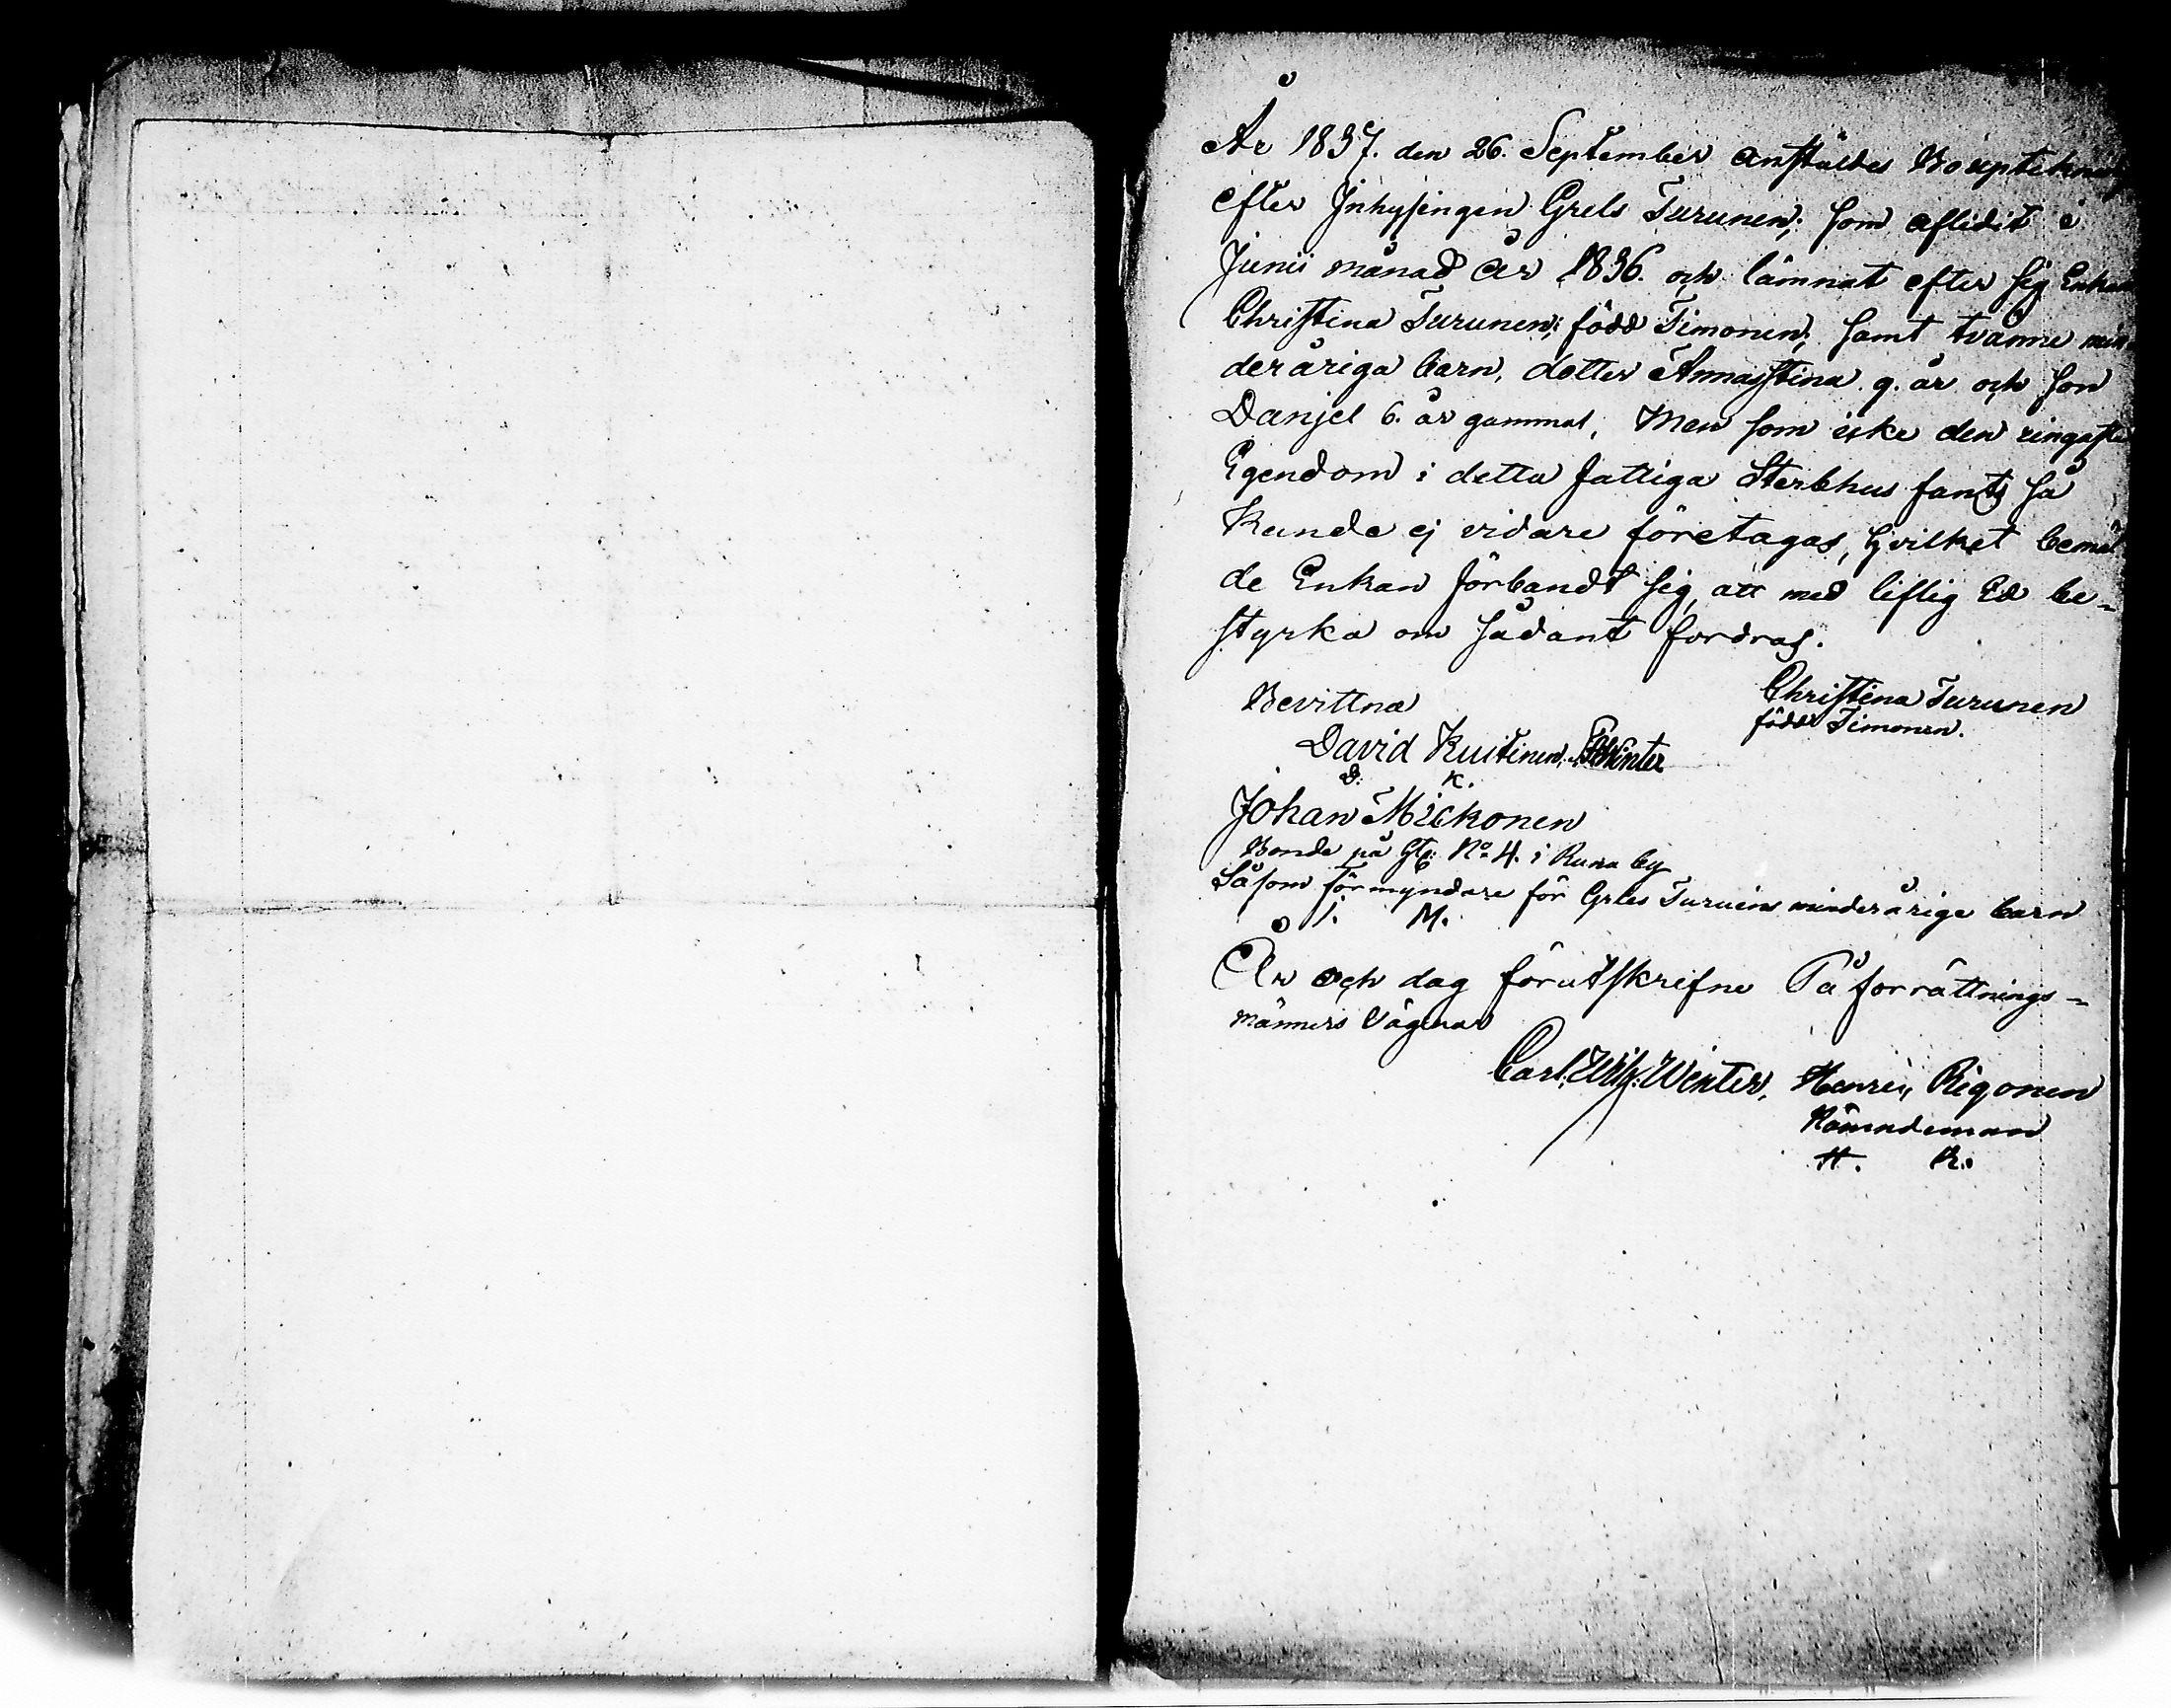 År 1837. den 26. September anstäldes Bouptekning
efter Inhysingen Grels Turunen; som aflidit i
Junii månad år 1836. och lämnat efter sig Enkan
Christina Turunen; född Timonen; samt tvänne min
deråriga barn, dotter Annastina 9. år och son
Danjel 6. år gammal, Men som icke den ringaste
Egendom i detta fattiga Sterbhus fants så
Kunde ej vidare företagas, hvilket bemäl
de Enkan förbandt sig, att med liflig Ed be-
styrka om sådant fordras.
Christina Turunen
född Timonen.
Bevittna
David Kuitinen, Winter
D. K.
Johan Mickonen
Bonde på No 4. i Runa by
Såsom förmyndare för Grles Turuins minderårige barn
J. M.
År och dag förutskrefne På förrättnings-
männers Vägnar
Carl. Wilh. Winter, Henric, Rigonen
Nämndeman
H. R.